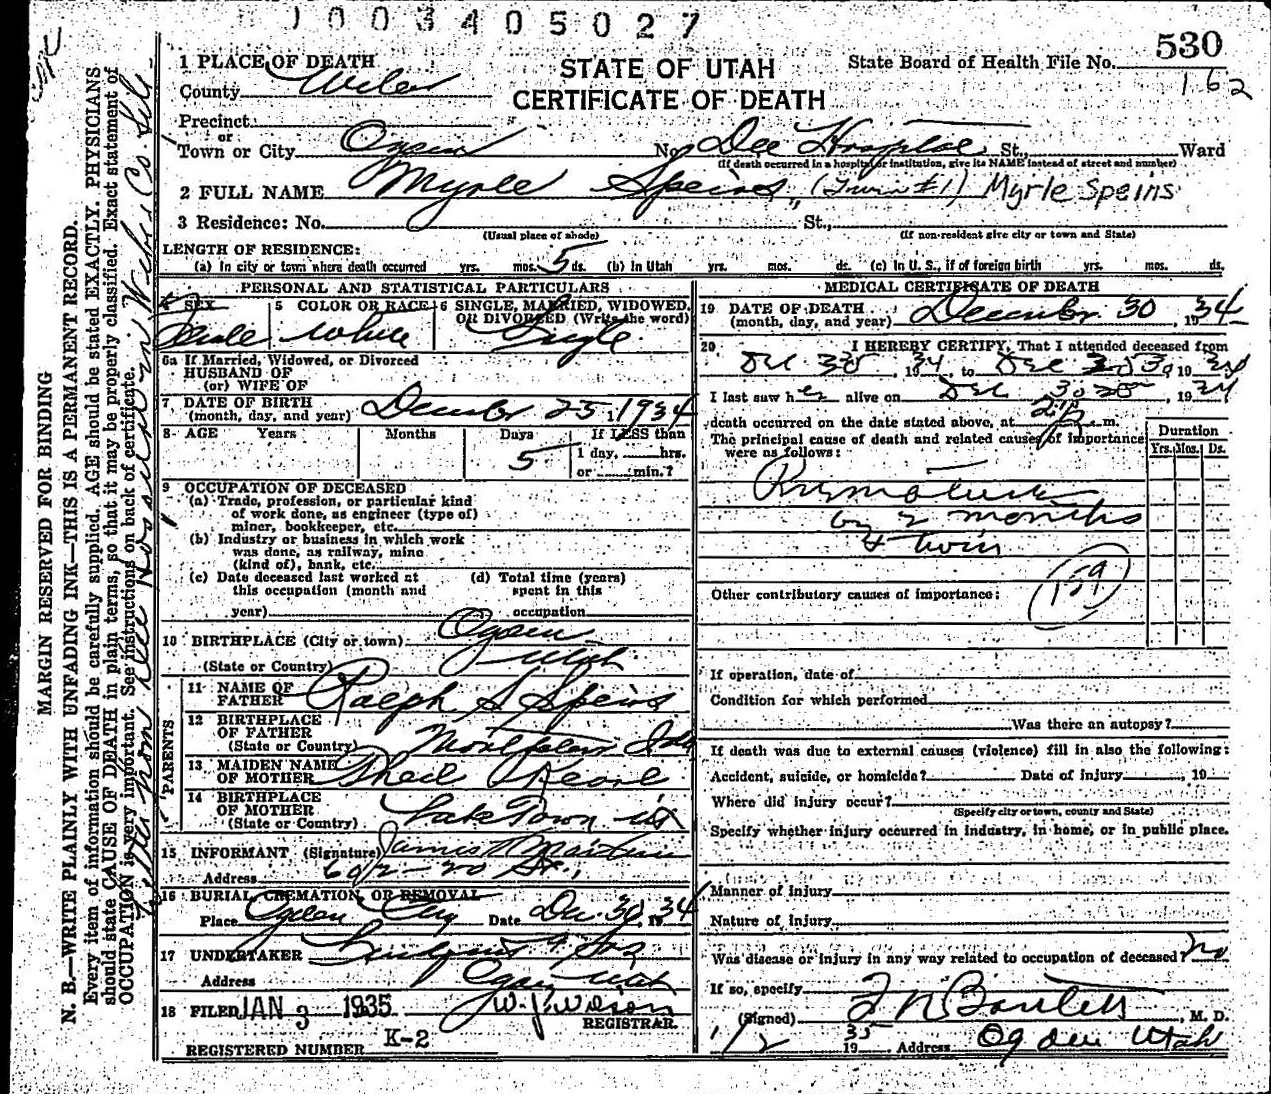 1003405027
530
1 PLACE OF DEATH
STATE OF UTAH
State Board of Health File No.
162
County Weber
CERTIFICATE OF DEATH
Precinct
or
Town or City Ogden No. Dee Hospital St., Ward
(If death occurred in a hospital or institution, give its NAME instead of street and number)
2 FULL NAME Myrle Speirs (Twin #1) Myrle Speirs
3 Residence: No. St.,
(Usual place of abode) (If non-resident give city or town and State)
LENGTH OF RESIDENCE:
(a) In city or town where death occurred yrs. mos. 5 ds. (b) In Utah yrs. mos. ds. (c) In U. S., if of foreign birth yrs. mos. ds.
PERSONAL AND STATISTICAL PARTICULARS
4 SEX 5 COLOR OR RACE 6 SINGLE, MARRIED, WIDOWED,
OR DIVORCED (Write the word)
Female White Single
6a If Married, Widowed, or Divorced
HUSBAND OF
(or) WIFE OF
7 DATE OF BIRTH
(month, day, and year) December 25 1934
8 AGE Years Months Days If LESS than
5 1 day, hrs.
or min.?
9 OCCUPATION OF DECEASED
(a) Trade, profession, or particular kind
of work done, as engineer (type of)
miner, bookkeeper, etc.
(b) Industry or business in which work
was done, as railway, mine
(kind of), bank, etc.
(c) Date deceased last worked at (d) Total time (years)
this occupation (month and spent in this
year) occupation
10 BIRTHPLACE (City or town) Ogden
(State or Country) Utah
PARENTS
11 NAME OF
FATHER Ralph S Speirs
12 BIRTHPLACE
OF FATHER
(State or Country) Montpelier Ida
13 MAIDEN NAME
OF MOTHER Kearl
14 BIRTHPLACE
OF MOTHER
(State or Country) Lake Town Ut
15 INFORMANT (Signature) James Martin
Address 20 St.,
16 BURIAL, CREMATION, OR REMOVAL
Place Ogden City Date Dec. 30, 1934
17 UNDERTAKER & Son
Address Ogden Utah
18 FILED JAN 3 1935 W. J. Wilson
REGISTRAR.
REGISTERED NUMBER K-2
MEDICAL CERTIFICATE OF DEATH
19 DATE OF DEATH
(month, day, and year) December 30, 1934
20 I HEREBY CERTIFY, That I attended deceased from
Dec, 1934, to Dec 30, 1934
I last saw her alive on Dec 30, 1934
death occurred on the date stated above, at m.
The principal cause of death and related causes of importance
were as follows:
Duration
Yrs. Mos. Ds.
Premature
by 2 months
& twin
159
Other contributory causes of importance:
If operation, date of
Condition for which performed
Was there an autopsy?
If death was due to external causes (violence) fill in also the following:
Accident, suicide, or homicide? Date of injury, 19
Where did injury occur?
(Specify city or town, county and State)
Specify whether injury occurred in industry, in home, or in public place.
Manner of injury
Nature of injury
Was disease or injury in any way related to occupation of deceased? no
If so, specify
(Signed) Bartlett, M. D.
1/2 1935 Address Ogden Utah
MARGIN RESERVED FOR BINDING
N. B.—WRITE PLAINLY WITH UNFADING INK—THIS IS A PERMANENT RECORD.
Every item of information should be carefully supplied. AGE should be stated EXACTLY. PHYSICIANS
should state CAUSE OF DEATH in plain terms, so that it may be properly classified. Exact statement of
OCCUPATION is very important. See instructions on back of certificate.